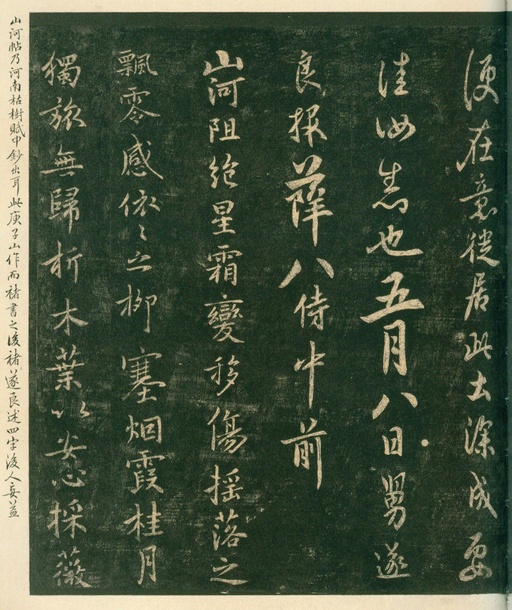 便在意徙居此土深成要
佳汝悉也五月八日舅遂
良报薛八侍中前
山河阻绝星霜變移傷摇落之
飄零感依〻之柳塞烟霞桂月
獨旅無歸折木葉以安心採薇
山河帖乃河南枯樹賦中鈔出耳此庾子山作而褚書之後褚遂良述四字後人妄益